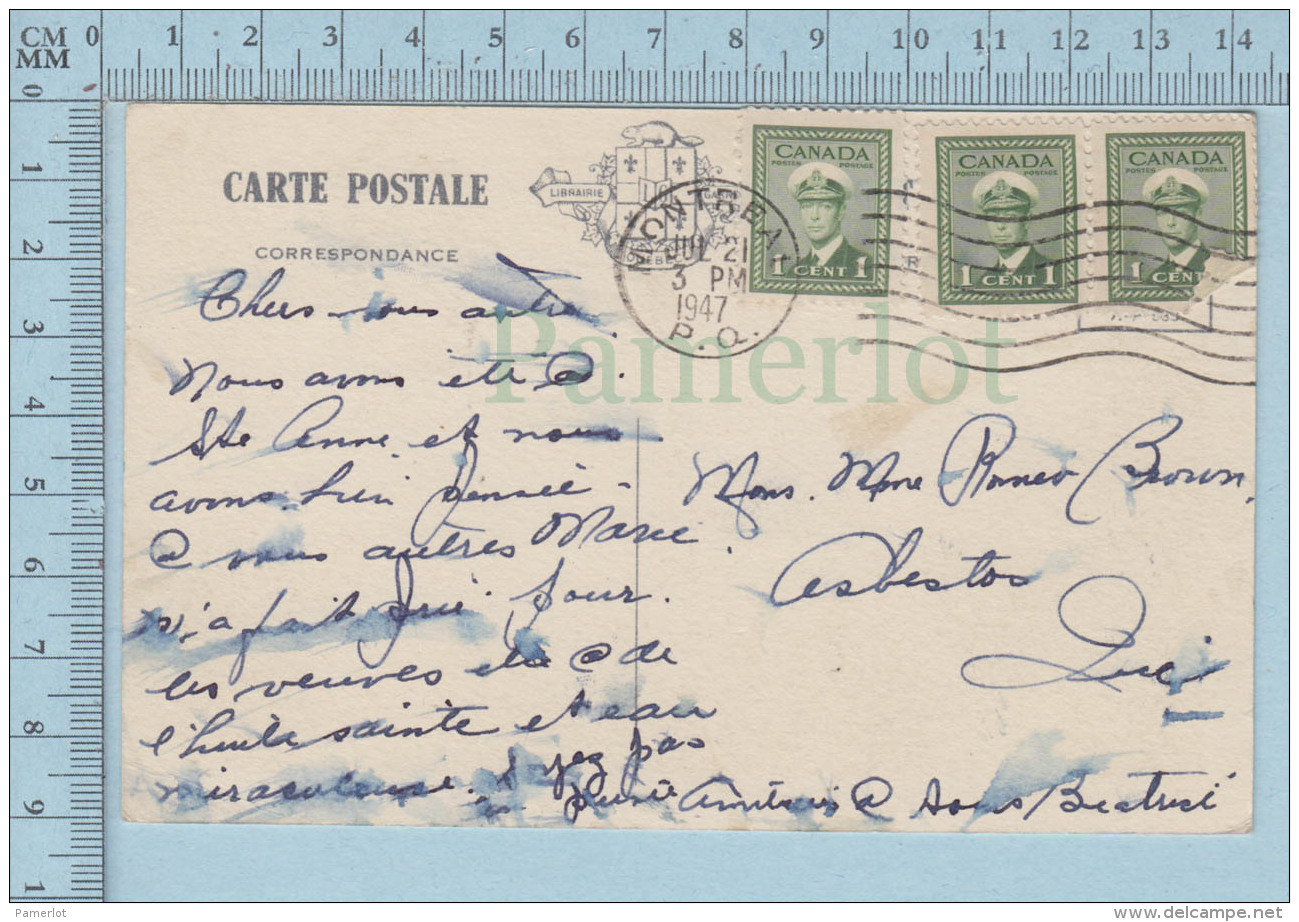 CM 0 1 2 3 4 5 6 7 8 9 10 11 12 13 14
MM
0 1 2 3 4 5 6 7 8 9 1
CARTE POSTALE
CORRESPONDANCE
LIBRAIRIE
MONTREAL
JUL 21
3 PM
1947
P.Q.
CANADA
POSTES POSTAGE
1 CENT 1
CANADA
POSTES POSTAGE
1 CENT 1
CANADA
POSTES POSTAGE
1 CENT
Pamerlot
Chers vous autre
Nous avons été @
Ste Anne et nous
avons bien pensée -
@ vous autres Marie
n'a fait prié pour
les veuves elle @ de
l'huile sainte et eau
miraculeuse. Soyez pas
Amitiés @ tous Béatrice
Mons. Mme Romeo Brown,
Asbestos
Que
Pamerlot
delcampe.net